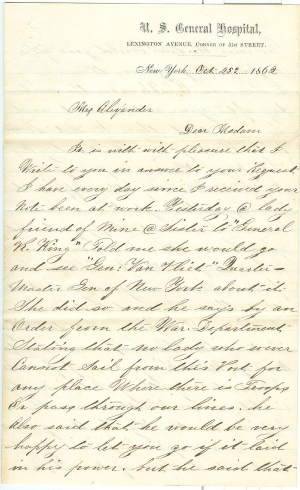 U. S. General Hospital,
LEXINGTON AVENUE, CORNER OF 51st STREET.
New York Oct 25th 1862
Mrs Alexander
Dear Madam
It is with with pleasure that I
Write to you in answer to your Request
I have every day since I received your
Note been at work. Yesterday @ lady
friend of Mine @ Sister to "General
R. King" Told me she would go
and see "Gen: Van Vliet" Quarter=
Master Gen of New York about it.
She did so and he says by an
Order from the War. Department
Stating that no lady who ever
Cannot Sail from this Port for
any place Where there is Troops
Or pass through our lines. he
also said that he would be very
happy to let you go if it laid
in his power. but he said that